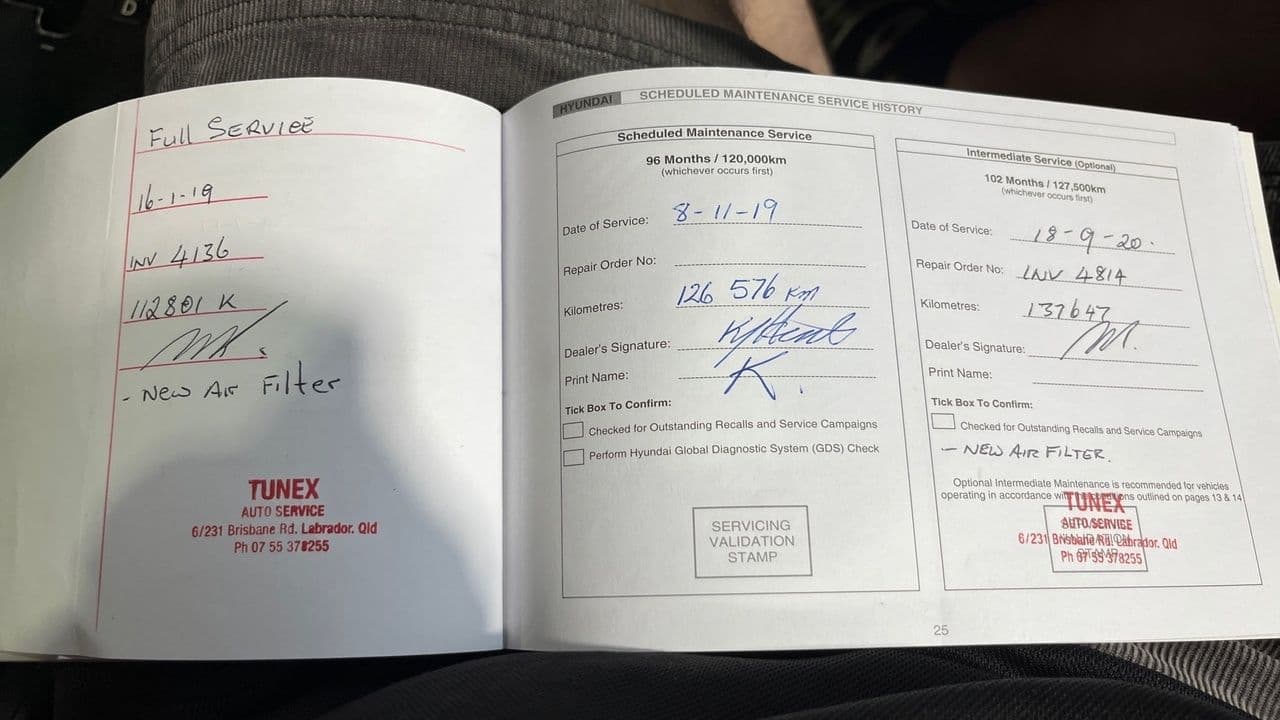 Full SERVICE
16-1-19
INV 4136
112801 K
- New Air Filter
TUNEX
AUTO SERVICE
6/231 Brisbane Rd. Labrador. Qld
Ph 07 55 378255
HYUNDAI SCHEDULED MAINTENANCE SERVICE HISTORY
Scheduled Maintenance Service
96 Months / 120,000km
(whichever occurs first)
Date of Service: 8-11-19
Repair Order No:
Kilometres: 126 576 Km
Dealer's Signature:
Print Name: K.
Tick Box To Confirm:
Checked for Outstanding Recalls and Service Campaigns
Perform Hyundai Global Diagnostic System (GDS) Check
SERVICING
VALIDATION
STAMP
Intermediate Service (Optional)
102 Months / 127,500km
(whichever occurs first)
Date of Service: 18-9-20.
Repair Order No: INV 4814
Kilometres: 137647
Dealer's Signature:
Print Name:
Tick Box To Confirm:
Checked for Outstanding Recalls and Service Campaigns
- NEW AIR FILTER.
Optional Intermediate Maintenance is recommended for vehicles
operating in accordance outlined on pages 13 & 14
TUNEX
AUTO SERVICE
6/231 Brisbane Rd. Labrador. Qld
Ph 07 55 378255
25